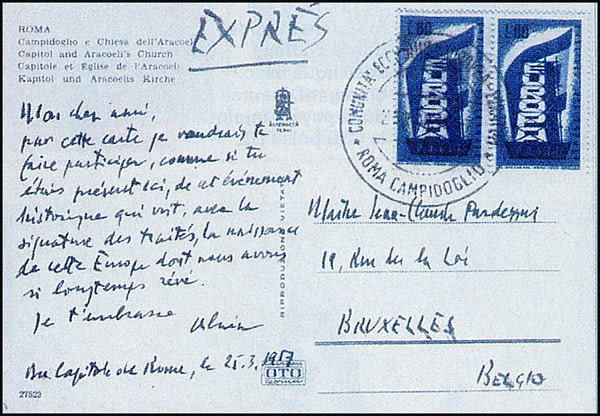 ROMA
Campidoglio e Chiesa dell'Aracoeli
Capitol and Aracoeli's Church
Capitole et Église de l'Aracoeli
Kapitol und Aracoelis Kirche
EXPRÈS
L.60
L.60
EUROPA
EUROPA
ROMA CAMPIDOGLIO
Mon cher ami,
par cette carte je voudrais te
faire participer, comme si tu
étais présent ici, de cet événement
historique qui voit, avec la
signature des traités, la naissance
de cette Europe dont nous avons
si longtemps rêvé.
Je t'embrasse
Alain
Du Capitole de Rome, le 25.3.1957
Maître Jean-Claude
19, Rue de la Loi
BRUXELLES
BELGIO
OTO
27522